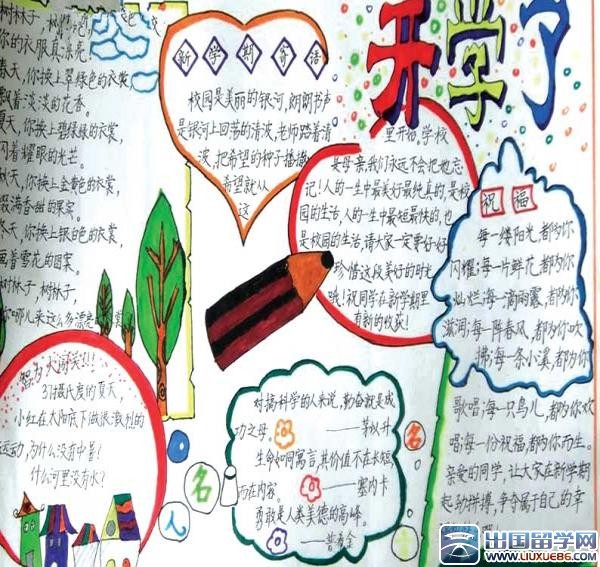 开学了
树林子,树
你的衣服真漂亮!
春天,你换上翠绿色的衣裳,
飘着淡淡的花香。
夏天,你换上碧绿绿的衣裳,
闪着耀眼的光芒。
秋天,你换上金黄色的衣裳,
满香甜的果实。
冬天,你换上银白色的衣裳,
着雪花的图案。
树林子,树林子,
你哪儿来这么多漂亮 裳
新学期寄语
校园是美丽的银河,朗朗书声
是银河上回荡的清波,老师踏着清
波,把希望的种子播撒
希望就从
这
里开始。学校
是母亲,我们永远不会把他忘
记!人的一生中最美好最纯真的,是校
园的生活,人的一生中最短最快的,也
是校园的生活,请大家一定要好好
珍惜这段美好的时光
哦!祝同学在新学期里
有新的收获!
祝福
每一缕阳光,都为你
闪耀;每一片鲜花,都为你
灿烂;每一滴雨露,都为你
滋润;每一阵春风,都为你吹
拂;每一条小溪,都为你
歌唱;每一只鸟儿,都为你欢
唱;每一份祝福,都为你而生。
亲爱的同学,让大家在新学期
起劲拼搏,争夺属于自己的幸
智力大闯关!!!
37摄氏度的夏天,
小红在太阳底下做很激烈的
运动,为什么没有中暑?
什么河里没有水?
名人名言
对搞科学的人来说,勤奋就是成
功之母。
——茅以升
生命如同寓言,其价值不在长短,
而在内容。——塞内卡
勇敢是人类美德的高峰。
——普希金
出国留学网
WWW.LIUXUE86.COM